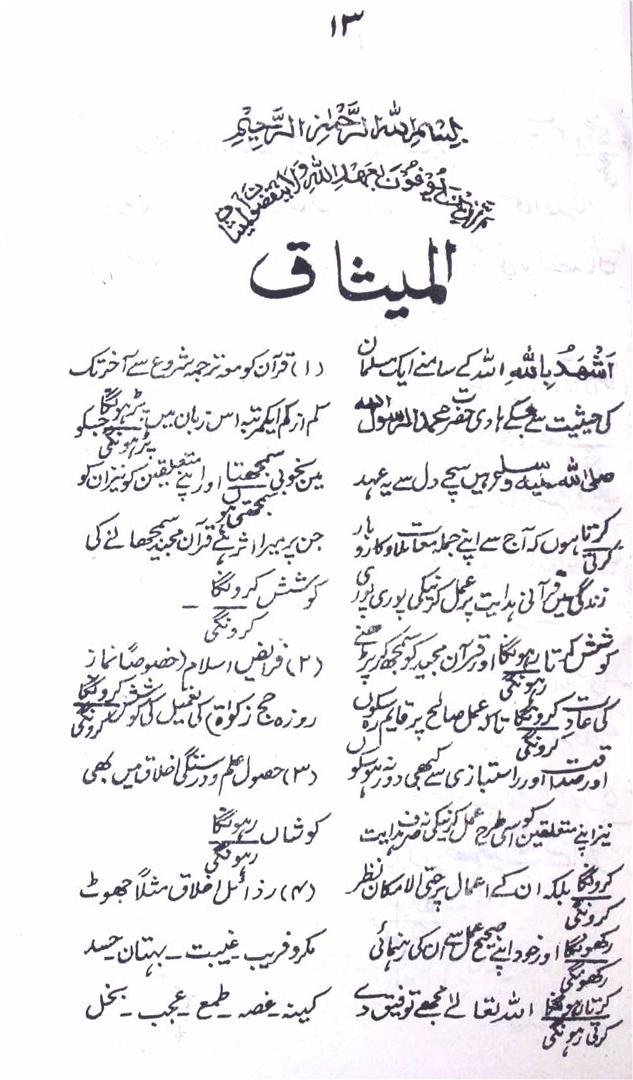 ۱۳
بِسْمِ اللهِ الرَّحْمٰنِ الرَّحِيْمِ
اَلَّذِیْنَ یُوْفُوْنَ بِعَهْدِ اللهِ وَلَا یَنْقُضُوْنَ الْمِیْثَاقَ
المیثاق
اَشْهَدُ بِاللهِ اللہ کے سامنے ایک مسلمان
کی حیثیت سے جسکے ہادی حضرت محمد الرسول اللہ
صلی اللہ علیہ وسلم ہیں سچے دل سے یہ عہد
کرتا ہوں کہ آج سے اپنے جملہ معاملات و کاروبار
کرتی
زندگی میں قرآنی ہدایت پر عمل کرنیکی پوری پوری
کوشش کرتا رہونگا اور قرآن مجید کو سمجھ کر پڑھنے
رہونگی
کی عادت کرونگا تاکہ عمل صالح پر قایم رہ سکوں
کرونگی
اور صداقت اور راستبازی سے کبھی دور نہ ہو سکوں
نیز اپنے متعلقین کو اسی طرح عمل کرنیکی نہ صرف ہدایت
کرونگا بلکہ ان کے اعمال پر حتی الامکان نظر
کرونگی
رکھونگا اور خود اپنے صحیح عمل سے ان کی رہنمائی
رکھونگی
کرتا رہونگا اللہ تعالےٰ مجھے توفیق دے
کرتی رہونگی
(۱) قرآن کو معہ ترجمہ شروع سے آخر تک
کم از کم ایکمرتبہ اس زبان میں پڑہونگا جسکو
پڑہونگی
میں بخوبی سمجھتا اور اپنے متعلقین کو نیز ان کو
سمجھتی ہوں
جن پر میرا اثر ہے قرآن مجید سمجھانے کی
کوشش کرونگا ۔
کرونگی
(۲) فرائض اسلام (خصوصاً نماز
روزہ حج زکوٰۃ) کی تعمیل کی کوشش کرونگا
کرونگی
(۳) حصول علم و درستگی اخلاق میں بھی
کوشاں رہونگا
رہونگی
(۴) رذائل اخلاق مثلاً جھوٹ
مکر و فریب ۔ غیبت ۔ بہتان ۔ حسد
کینہ ۔ غصہ ۔ طمع ۔ عجب ۔ بخل